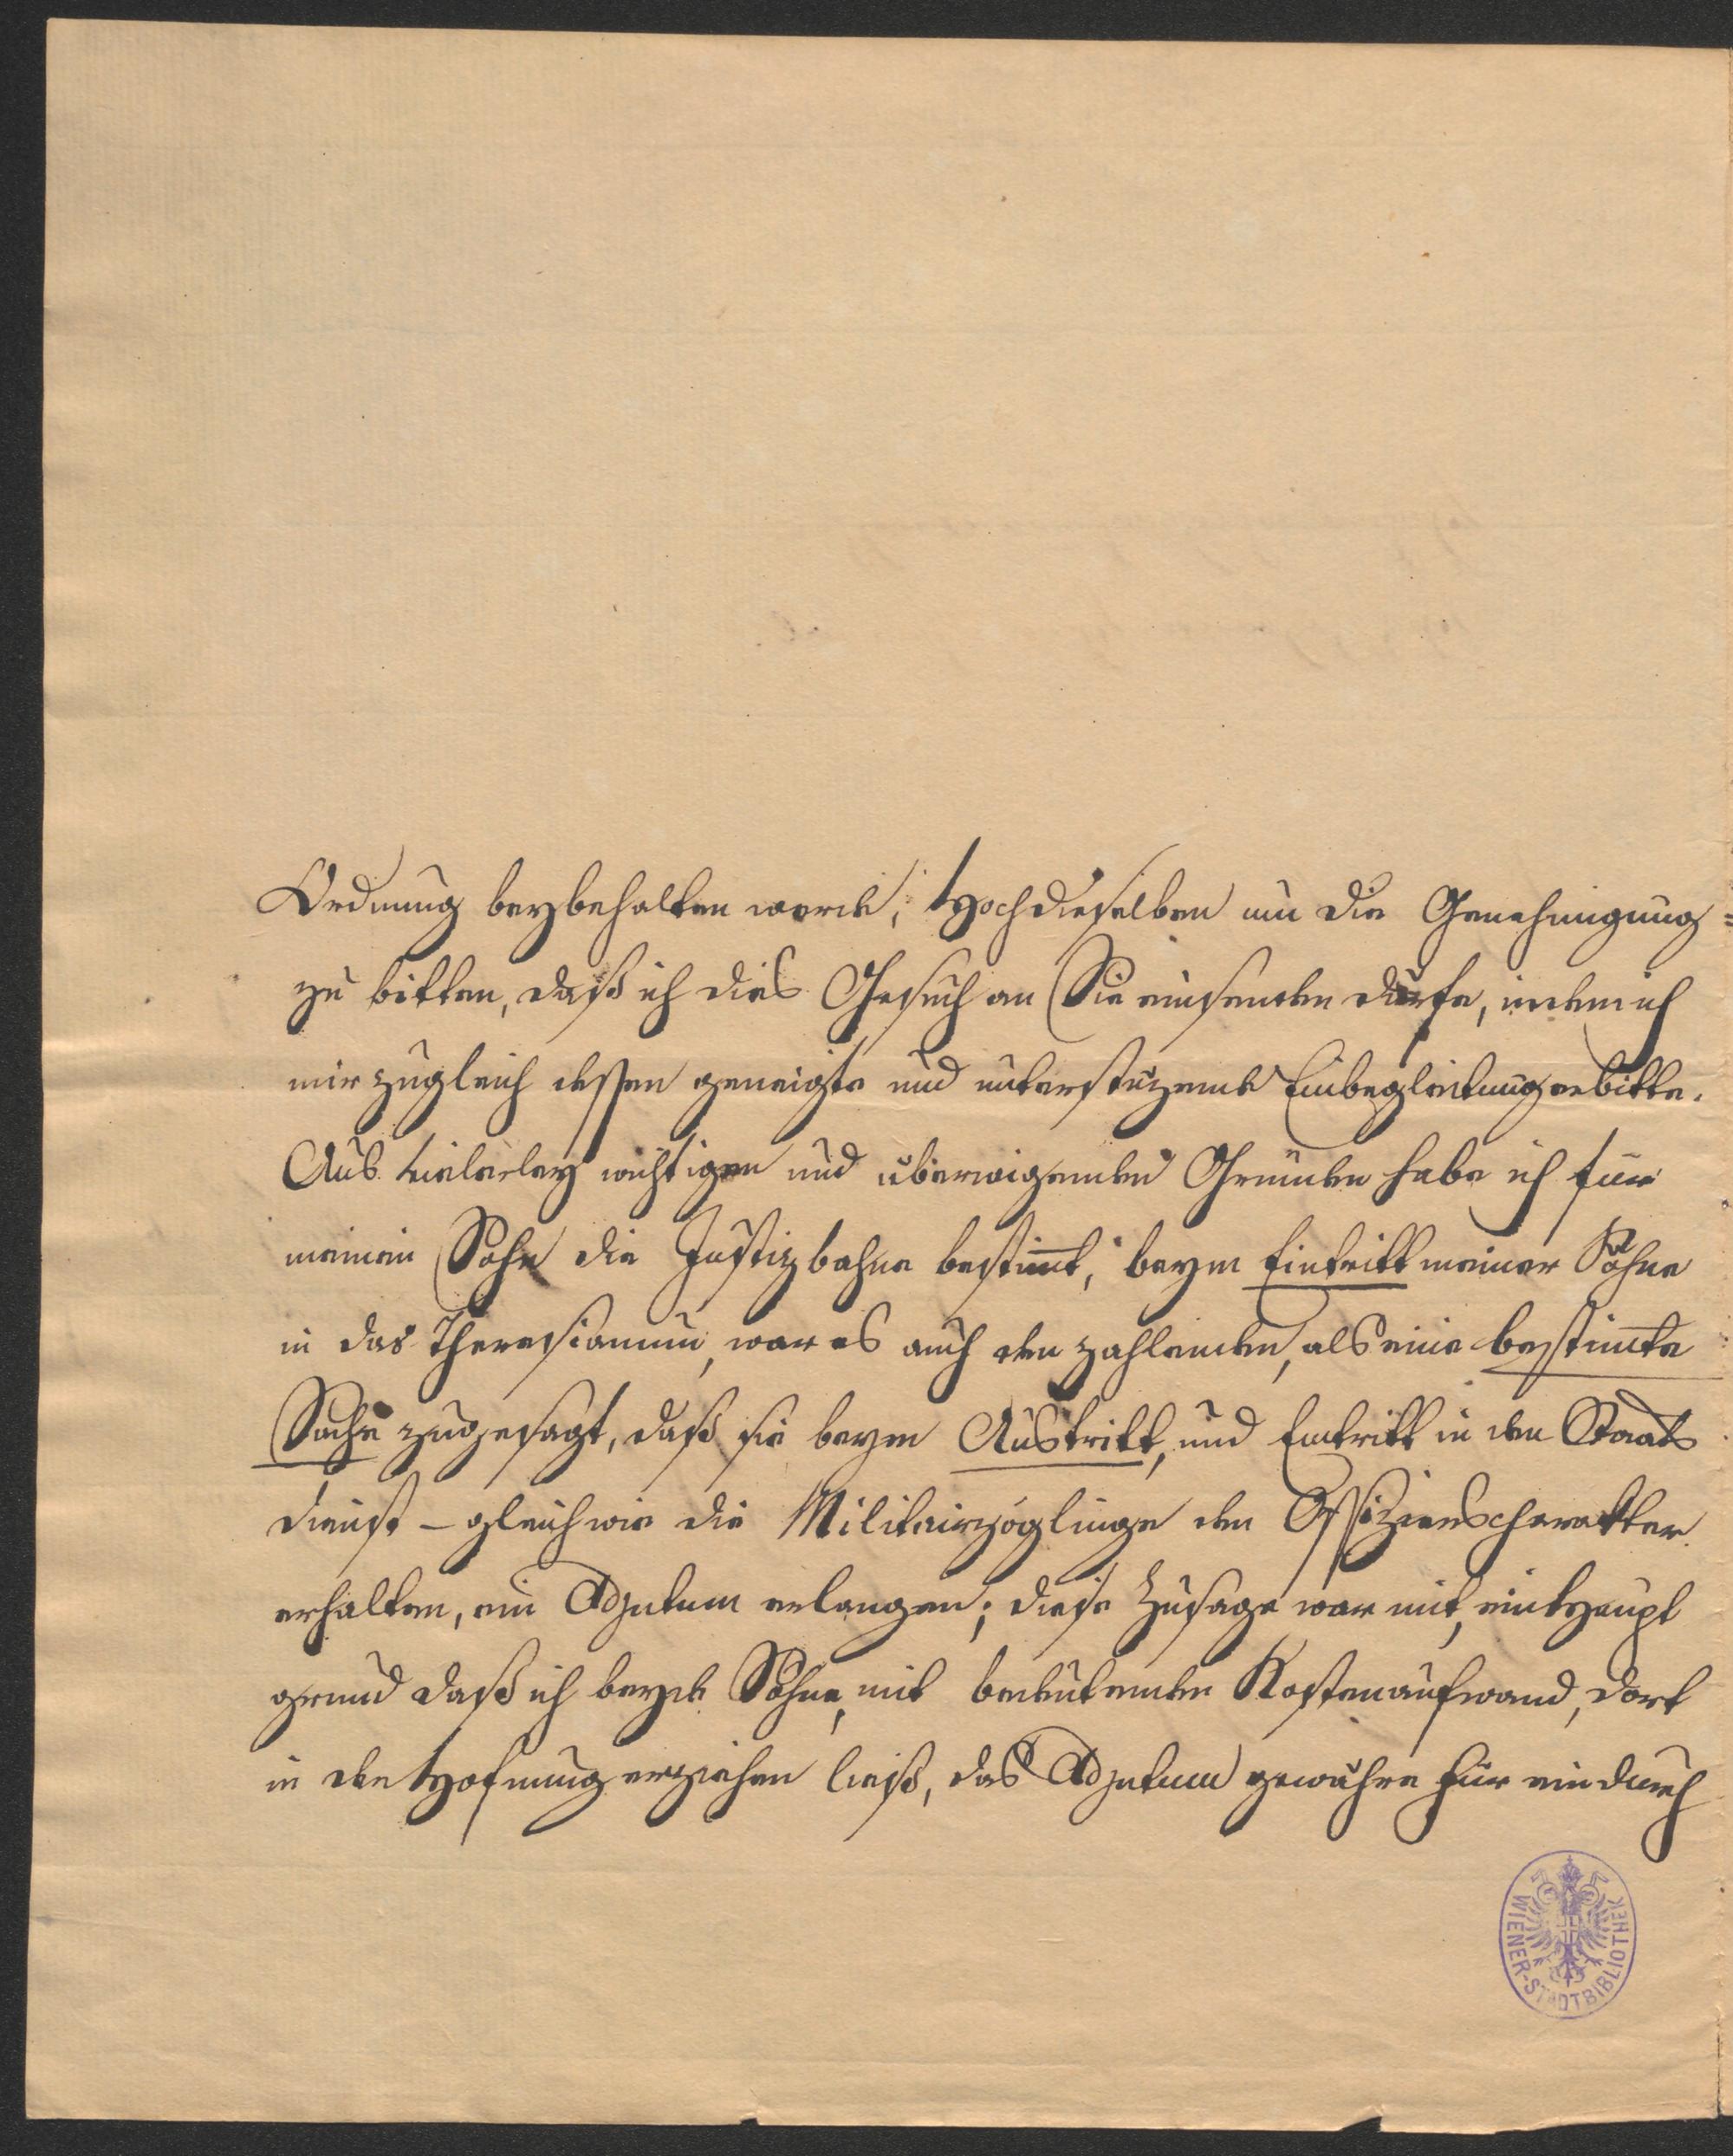 Ordnung beybehalten werde, Hochdieselben um die Genehmigung
zu bitten, daß ich dies Gesuch an Sie einsenden dürfe, indem ich
mir zugleich dessen geneigte und unterstüzende Einbegleitung erbitte.
Aus vielerley wichtigen und überwiegenden Gründen habe ich für
meinen Sohn die Justizbahne bestim̅t, beym Eintritt meiner Söhne
in das Theresianum, war es auch den zahlenden, als eine bestim̅te
Sache zugesagt, daß sie beym Austritt, und Eintritt in den Staats
dienst – gleich wie die Militairzöglinge den Offizierscharakter
erhalten, ein Adjutum erlangen; diese Zusage war mit, ein Haupt
grund daß ich beyde Söhne, mit bedeutenden Kostenaufwand, dort
in der Hofnung erziehen ließ, das Adjutum gewähre für ein durch
WIENER-STADTBIBLIOTHEK